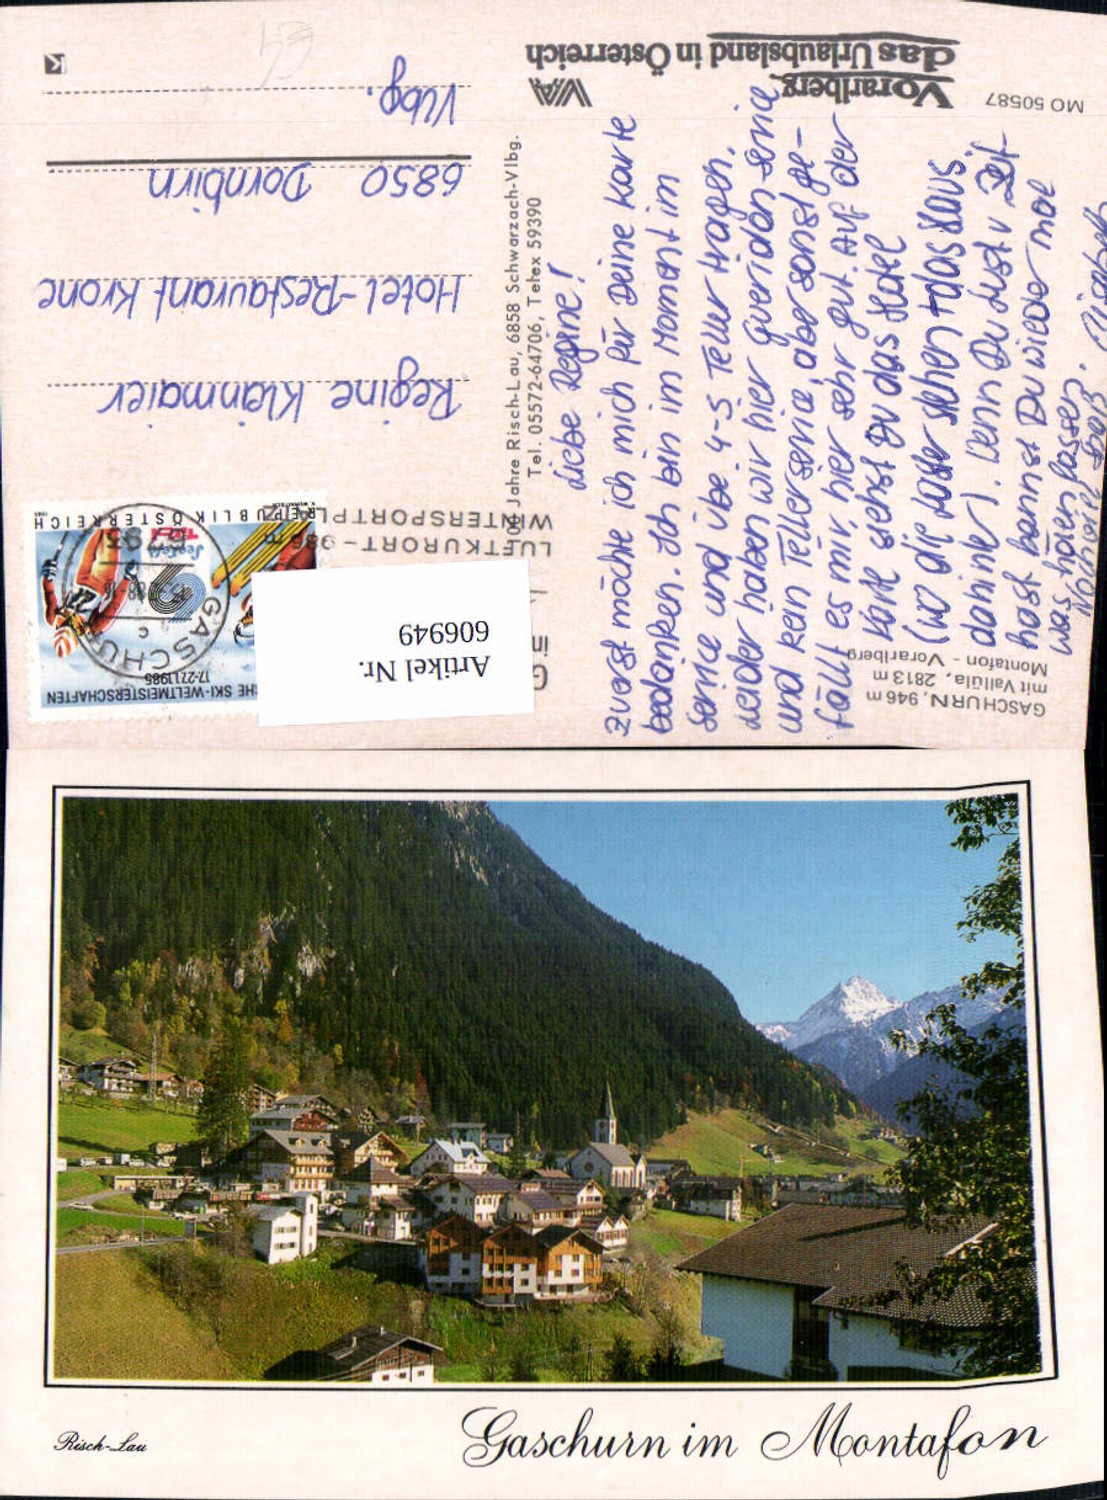 MO 50587
Vorarlberg
das Urlaubsland in Österreich
VVA
GASCHURN, 946 m
mit Vallüla, 2813 m
Montafon - Vorarlberg
Jahre Risch-Lau, 6858 Schwarzach-Vlbg.
Tel. 05572-64706, Telex 59390
Liebe Regine!
Zuerst möchte ich mich für Deine Karte
bedanken. Ich bin im Moment im
Service und übe 4-5 Teller tragen.
Leider haben wir hier Gueridon service
und kein Tellerservice, aber sonst ge-
fällt es mir hier sehr gut. Auf der
Karte siehst Du das Hotel
(wo die Pater stehen das Haus
dahinter). Wenn Du Lust u. Zeit
hast kannst Du wieder mal
was hören lassen.
LUFTKURORT-986 m
WINTERSPORTPLATZ
REPUBLIK ÖSTERREICH
CHE SKI-WELTMEISTERSCHAFTEN
17.-27.1.1985
Seefeld
TIROL
S 6
GASCHU
6793
Artikel Nr.
606949
Regine Klanmaier
Hotel-Restaurant Krone
6850 Dornbirn
Vlbg.
K
Risch-Lau
Gaschurn im Montafon